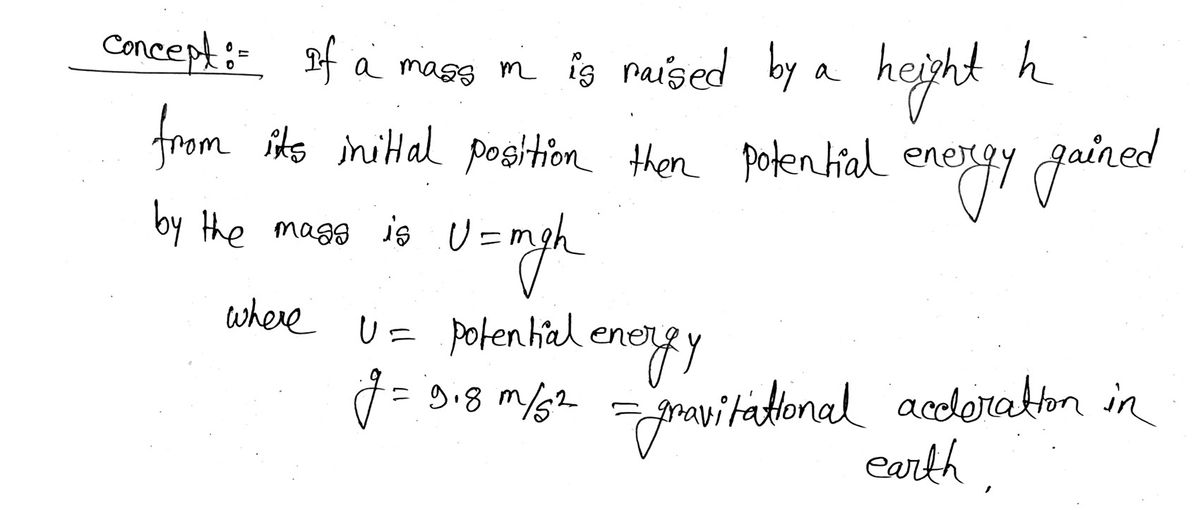 Concept :- If a mass m is raised by a height h
from its initial position then potential energy gained
by the mass is U = mgh
where U = potential energy
g = 9.8 m/s2 = gravitational acceleration in
earth.